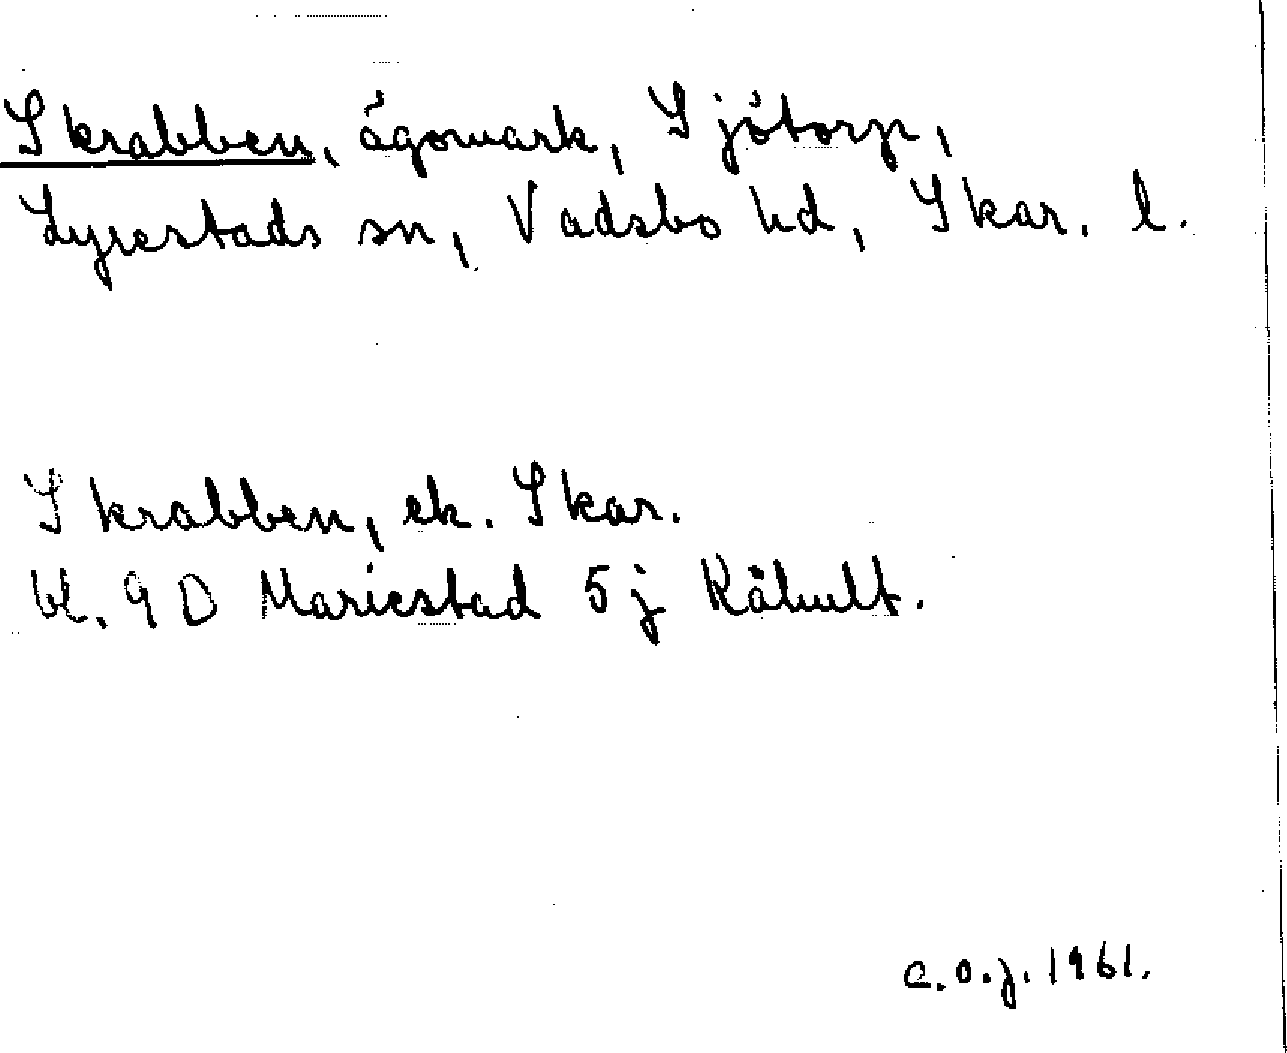 Skrabben, ägomark, Sjötorp,
Lyrestads sn, Vadsbo hd, Skar. l.
Skrabben, ek. Skar.
bl. 9D Mariestad 5j Råhult.
C.O.J. 1961.